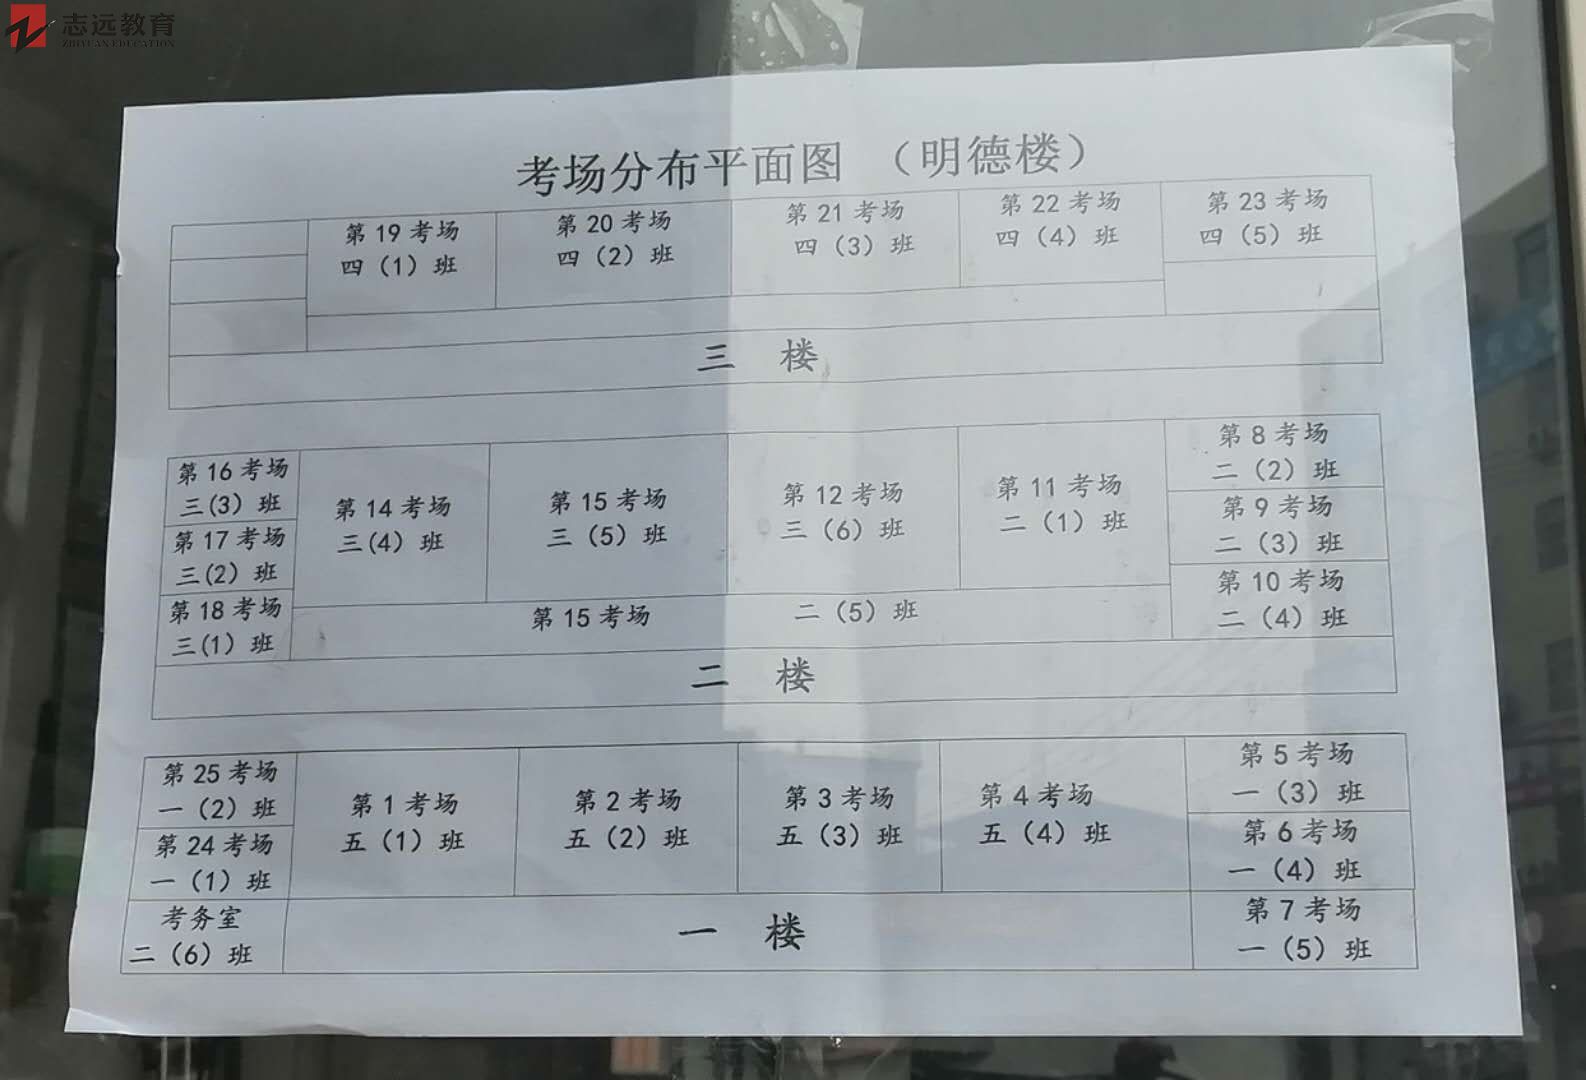 志远教育
ZHIYUAN EDUCATION
考场分布平面图 （明德楼）
第 19 考场
四（1）班
第 20 考场
四（2）班
第 21 考场
四（3）班
第 22 考场
四（4）班
第 23 考场
四（5）班
三 楼
第 16 考场
三(3）班
第 17 考场
三(2）班
第 18 考场
三(1）班
第 14 考场
三(4）班
第 15 考场
三（5）班
第 12 考场
三（6）班
第 11 考场
二（1）班
第 8 考场
二（2）班
第 9 考场
二（3）班
第 10 考场
二（4）班
第 15 考场 二（5）班
二 楼
第 25 考场
一（2）班
第 24 考场
一（1）班
考务室
二（6）班
第 1 考场
五（1）班
第 2 考场
五（2）班
第 3 考场
五（3）班
第 4 考场
五（4）班
第 5 考场
一（3）班
第 6 考场
一（4）班
第 7 考场
一（5）班
一 楼